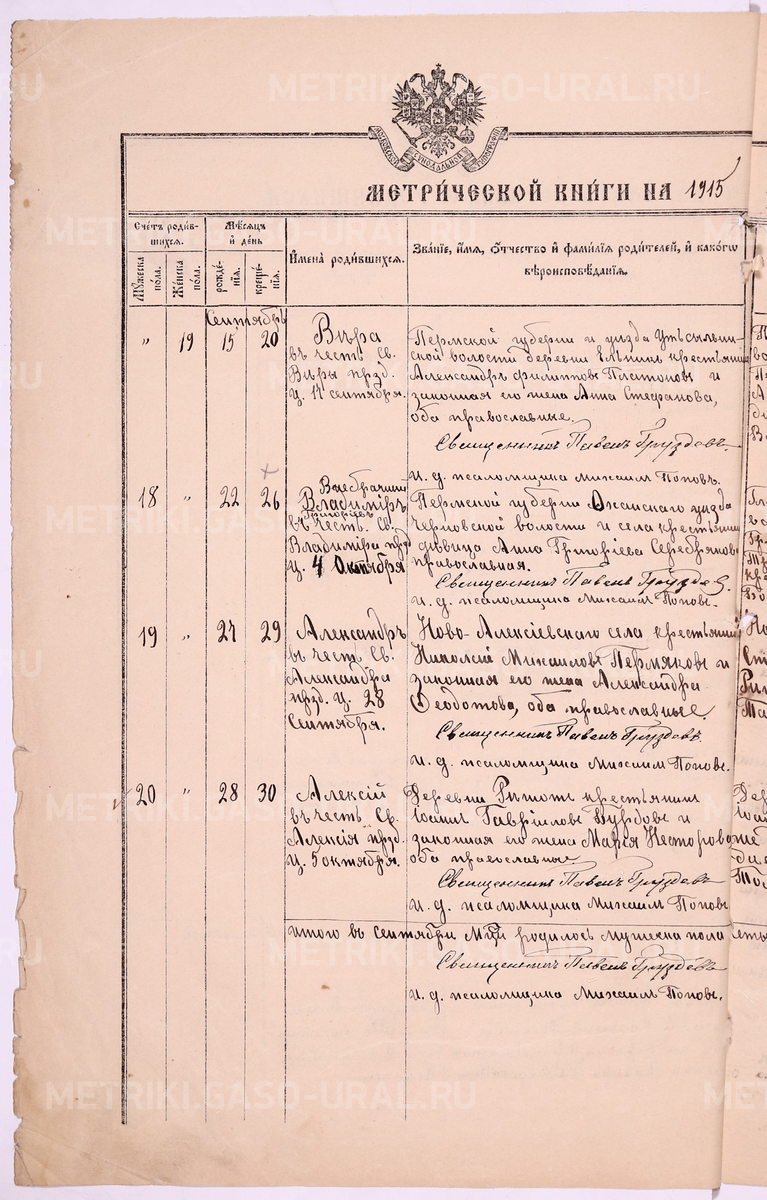 МОСКОВСКОЙ СѴНОДАЛЬНОЙ ТИПОГРАФІИ
МЕТРИ́ЧЕСКОЙ КНИ́ГИ НА 1915
Счетъ роди́в-
шихся.
Мѣсяцъ
и день
Имена роди́вшихся.
Зва́ніе, и́мя, о́тчество и фами́лія роди́телей, и како́гѡ
вѣроисповѣ́данія.
Му́жеска по́ла.
Же́нска по́ла.
рожде́нія.
креще́нія.
Сентябрь
" 19 15 20
Вѣра
въ честь Св.
Вѣры прзд.
ц. 17 сентября.
Пермской губерніи и уѣзда
ской волости деревни крестьянинъ
Александръ Филипповъ Платоновъ и
законная его жена Анна Стефанова,
оба православные.
Священникъ Павелъ Груздевъ.
И. д. псаломщика Михаилъ Поповъ.
18 " 22 26
Внебрачный
Владиміръ
Григоріевъ
въ честь Св.
Владиміра прзд.
ц. 4 Октября
Пермской губерніи Оханскаго уѣзда
Черновской волости и села крестьянин
дѣвица Анна Григоріева Серебряков
православная.
Священникъ Павелъ Груздев.
И. д. псаломщика Михаилъ Поповъ.
19 " 27 29
Александръ
въ честь Св.
Александра
прзд. ц. 28
Сентября.
Ново-Алексіевскаго села крестьянинъ
Николай Михаиловъ Пермяковъ и
законная его жена Александра
Ѳеодотова, оба православные.
Священникъ Павелъ Груздевъ.
И. д. псаломщика Михаилъ Поповъ.
20 " 28 30
Алексій
въ честь Св.
Алексія прзд.
ц. 5 октября.
Деревни крестьянинъ
Іоаннъ Гавріиловъ и
законная его жена Марія Несторова
оба православные
Священникъ Павелъ Груздевъ
И. д. псаломщика Михаилъ Поповъ
Итого въ Сентябрѣ родилось мужеска пола
Священникъ Павелъ Груздевъ
И. д. псаломщика Михаилъ Поповъ.
METRIKI.GASO-URAL.RU